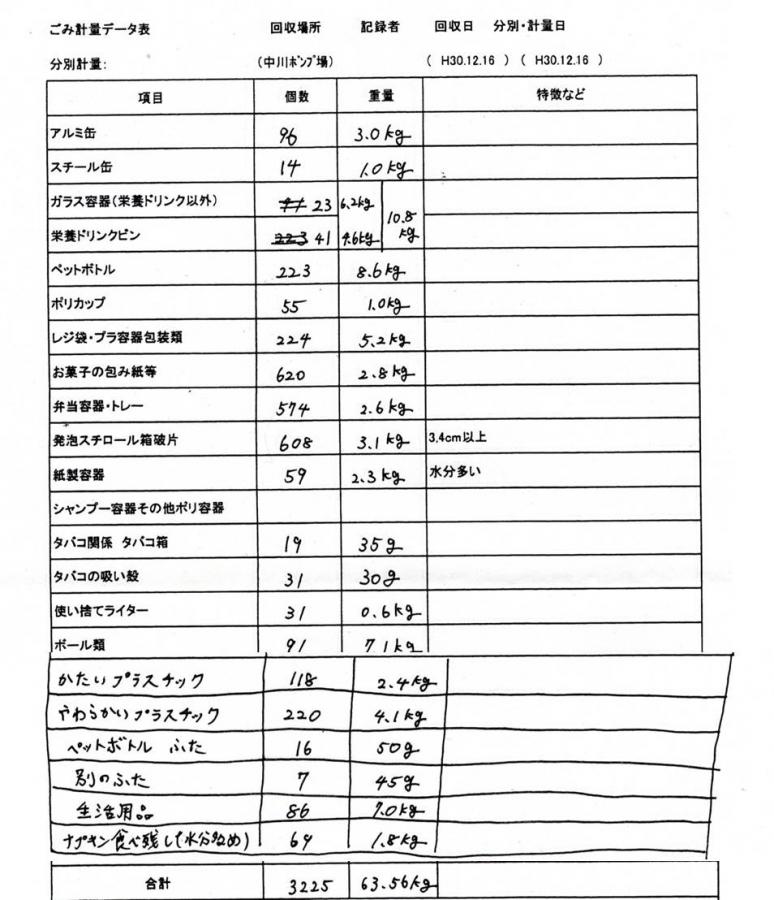 ごみ計量データ表 回収場所 記録者 回収日 分別・計量日
分別計量: (中川ポンプ場) ( H30.12.16 ) ( H30.12.16 )
項目 個数 重量 特徴など
アルミ缶 96 3.0kg
スチール缶 14 1.0kg
ガラス容器(栄養ドリンク以外) 23 6.2kg
10.8kg
栄養ドリンクビン 223 41 4.6kg
ペットボトル 223 8.6kg
ポリカップ 55 1.0kg
レジ袋・プラ容器包装類 224 5.2kg
お菓子の包み紙等 620 2.8kg
弁当容器・トレー 574 2.6kg
発泡スチロール箱破片 608 3.1kg 3,4cm以上
紙製容器 59 2.3kg 水分多い
シャンプー容器その他ポリ容器
タバコ関係 タバコ箱 19 35g
タバコの吸い殻 31 30g
使い捨てライター 31 0.6kg
ボール類 91 7.1kg
かたいプラスチック 118 2.4kg
やわらかいプラスチック 220 4.1kg
ペットボトル ふた 16 50g
別のふた 7 45g
生活用品 86 7.0kg
ナプキン食べ残し(水分多め) 64 1.8kg
合計 3225 63.56kg